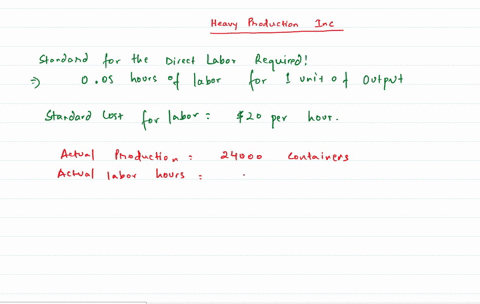 Heavy Production Inc
Standard for the Direct Labor Required!
⇒ 0.05 hours of labor for 1 unit of output
Standard Cost for labor = $20 per hour.
Actual Production = 24000 Containers
Actual labor hours =